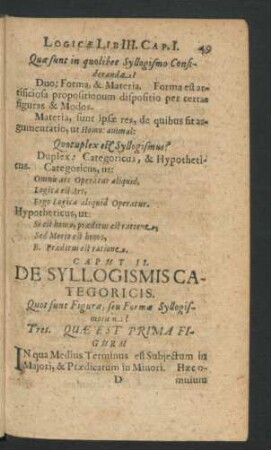 LOGICÆ LIB III. CAP. I. 49
Quæ sunt in quolibet Syllogismo Consi-
deranda?
Duo; Forma, & Materia. Forma est ar-
tificiosa propositionum dispositio per certas
figuras & Modos.
Materia, sunt ipsæ res, de quibus fit ar-
gumentatio, ut Homo: animal:
Quotuplex est Syllogismus?
Duplex: Categoricus, & Hypotheti-
cus. Categoricus, ut:
Omnis ars Operatur aliquid,
Logica est Ars,
Ergo Logica aliquid Operatur.
Hypotheticus, ut:
Si est homo, præditus est ratione,
Sed est homo,
E. Præditus est ratione.
CAPUT II.
DE SYLLOGISMIS CA-
TEGORICIS.
Quot sunt Figuræ, seu Formæ Syllogis-
Tres. QUÆ EST PRIMA FI-
GURA?
IN qua Medius Terminus est Subjectum in
Majori, & Prædicatum in Minori. Hæc o-
D